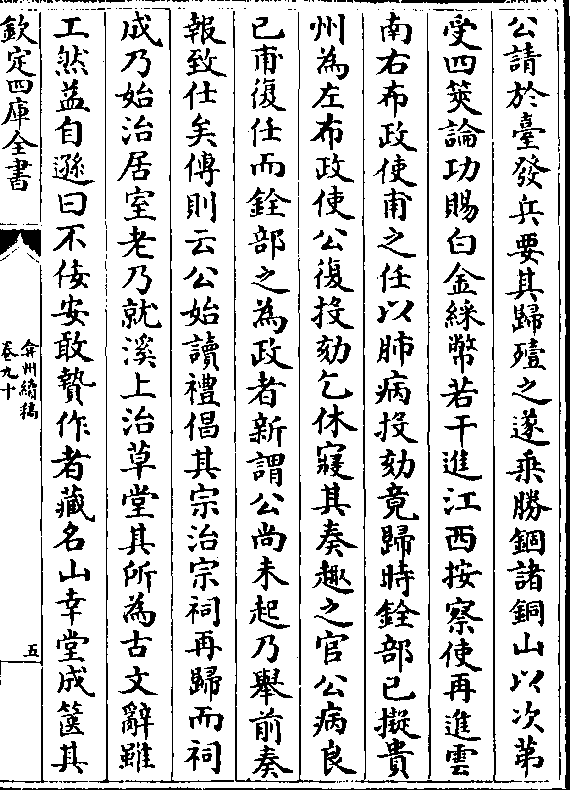 公請於臺發兵要其歸殪之遂乗勝錮諸銅山以次第
受四筴論功賜白金綵幣若干進江西按察使再進雲
南右布政使甫之任以肺病投劾竟歸時銓部已擬貴
州為左布政使公復投劾乞休寢其奏趣之官公病良
已甫復任而銓部之為政者新謂公尚未起乃舉前奏
報致仕矣傳則云公始讀禮倡其宗治宗祠再歸而祠
成乃始治居室老乃就溪上治草堂其所為古文辭雖
工然益自遜曰不佞安敢贄作者藏名山幸堂成篋其
欽定四庫全書
弇州續稿
卷九十
五